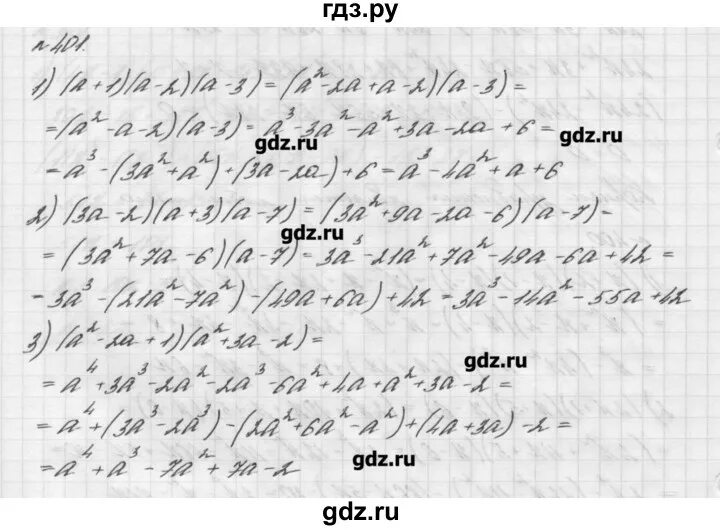 гдз.ру
№401.
1) (a+1)(a-2)(a-3)=(a²-2a+a-2)(a-3)=
=(a²-a-2)(a-3)=a³-3a²-a²+3a-2a+6=
gdz.ru
gdz.ru
=a³-(3a²+a²)+(3a-2a)+6=a³-4a²+a+6
2) (3a-2)(a+3)(a-7)=(3a²+9a-2a-6)(a-7)=
gdz.ru
=(3a²+7a-6)(a-7)=3a³-21a²+7a²-49a-6a+42=
=3a³-(21a²-7a²)-(49a+6a)+42=3a³-14a²-55a+42
3) (a²-2a+1)(a²+3a-2)=
gdz.ru
=a⁴+3a³-2a²-2a³-6a²+4a+a²+3a-2=
=a⁴+(3a³-2a³)-(2a²+6a²-a²)+(4a+3a)-2=
=a⁴+a³-7a²+7a-2
gdz.ru
гдз.ру